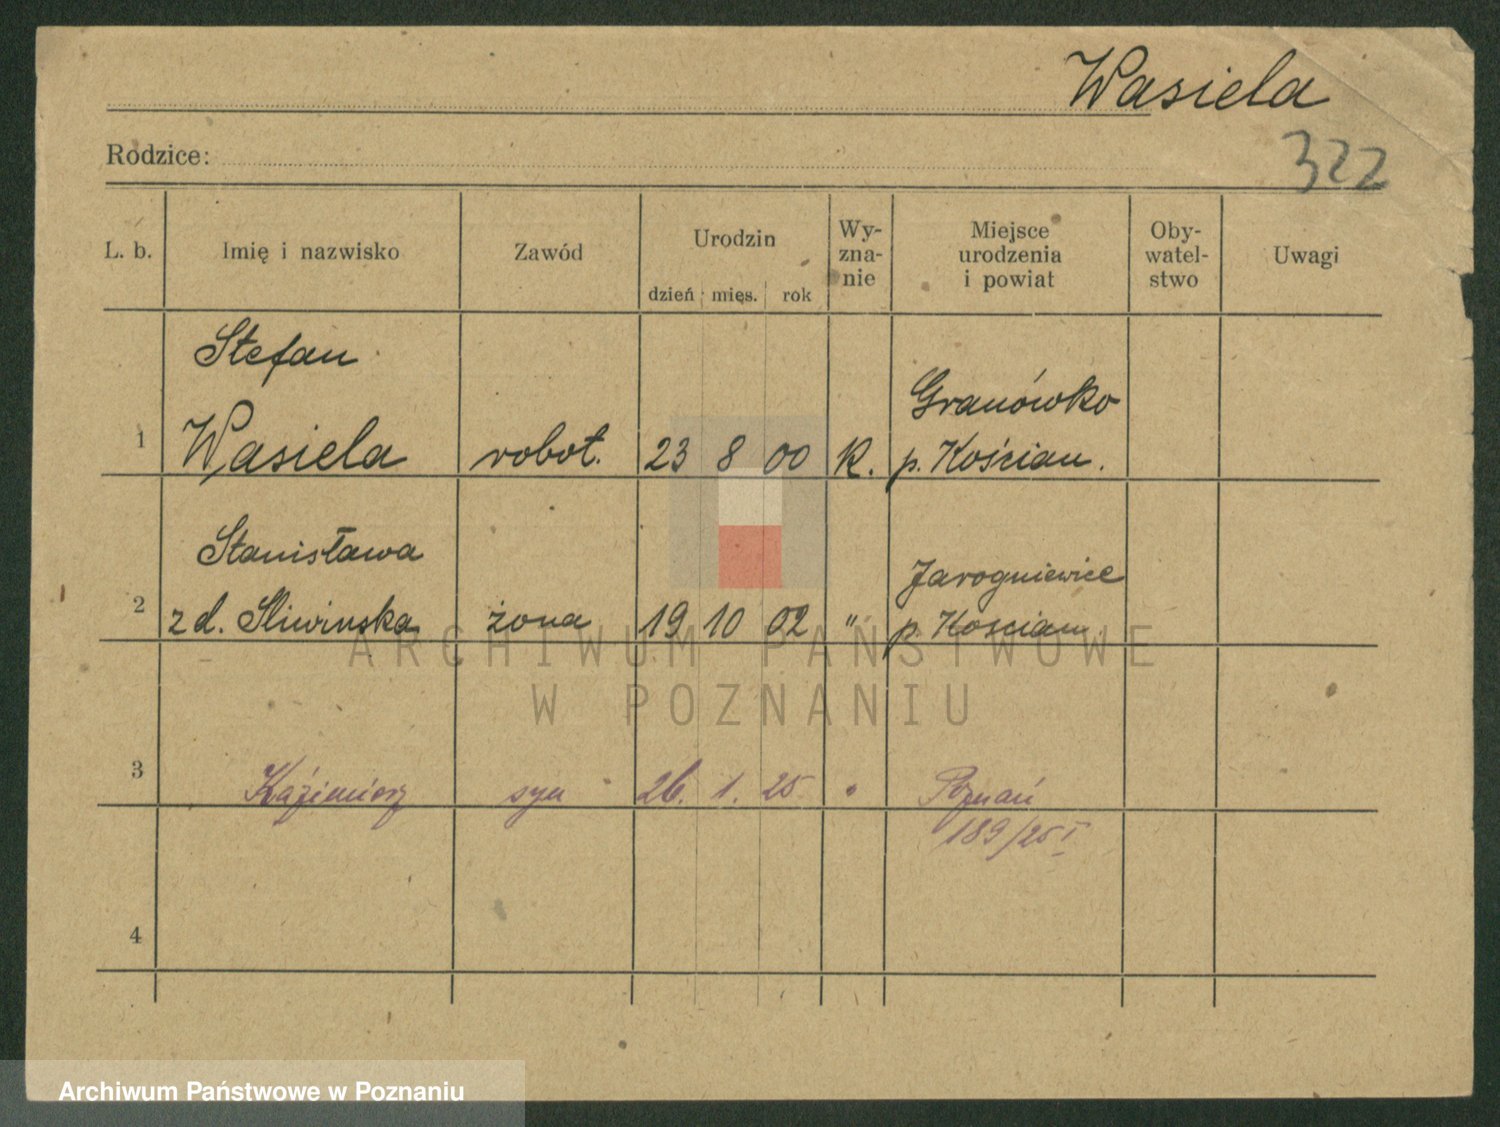 Wasiela
Rodzice:
322
L. b. Imię i nazwisko Zawód Urodzin dzień mięs. rok Wy-zna-nie Miejsce urodzenia i powiat Oby-watel-stwo Uwagi
Stefan
1 Wasiela robot. 23 8 00 k. Granówko p. Kościan.
Stanisława
2 z d. Śliwińska żona 19 10 02 " Jarogniewice p. Kościan.
ARCHIWUM PAŃSTWOWE
W POZNANIU
3 Kaźimierz syn 26. 1. 25 " Poznań
189/25 I
4
Archiwum Państwowe w Poznaniu